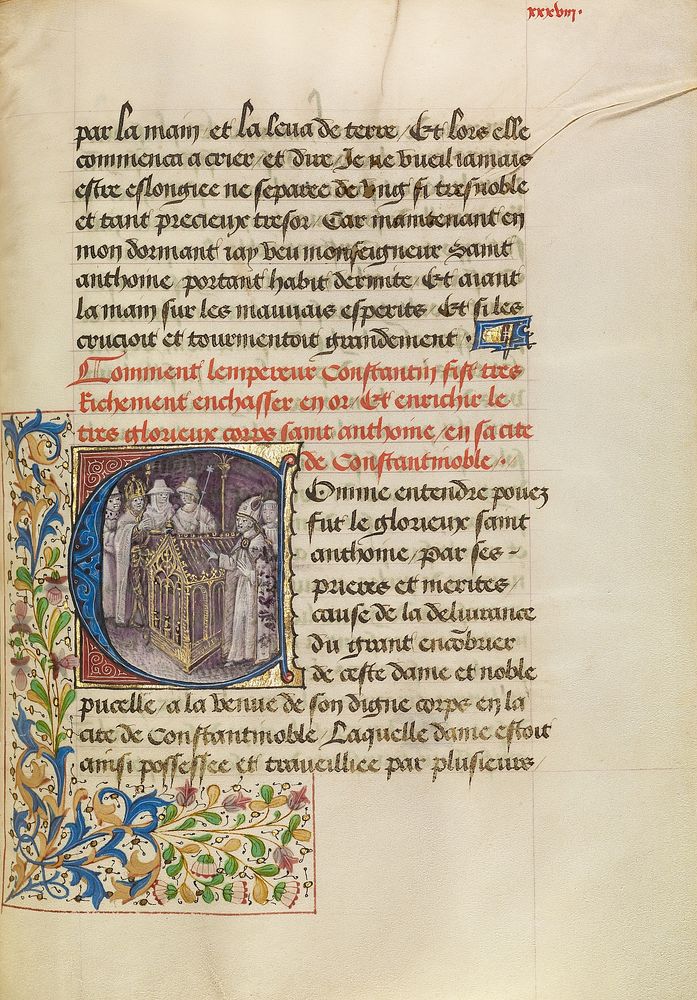 xxxviij·
par la main et la leua de terre / Et lors elle
commenca a crier / et dire / Je ne vueil iamais
estre eslongiee ne separee de vng si tresnoble
et tant precieux tresor / Car maintenant en
mon dormant iay veu monseigneur Saint
anthoine / portant habit dermite / Et aiant
la main sur les mauuais esperits / Et si les
crucioit et tourmentoit grandement ·
Comment lempereur Constantin fist tres
Richement enchasser en or / Et enrichir le
tres glorieux corps saint anthoine / en sa cite
de Constantinoble ·
Comme entendre pouez
fut le glorieux saint
anthoine / par ses -
prieres et merites
cause de la deliurance
du grant encõbrier
de ceste dame et noble
pucelle / a la venue de son digne corps en la
cite de Constantinoble / Laquelle dame estoit
ainsi possessee et trauelliee par plusieurs /